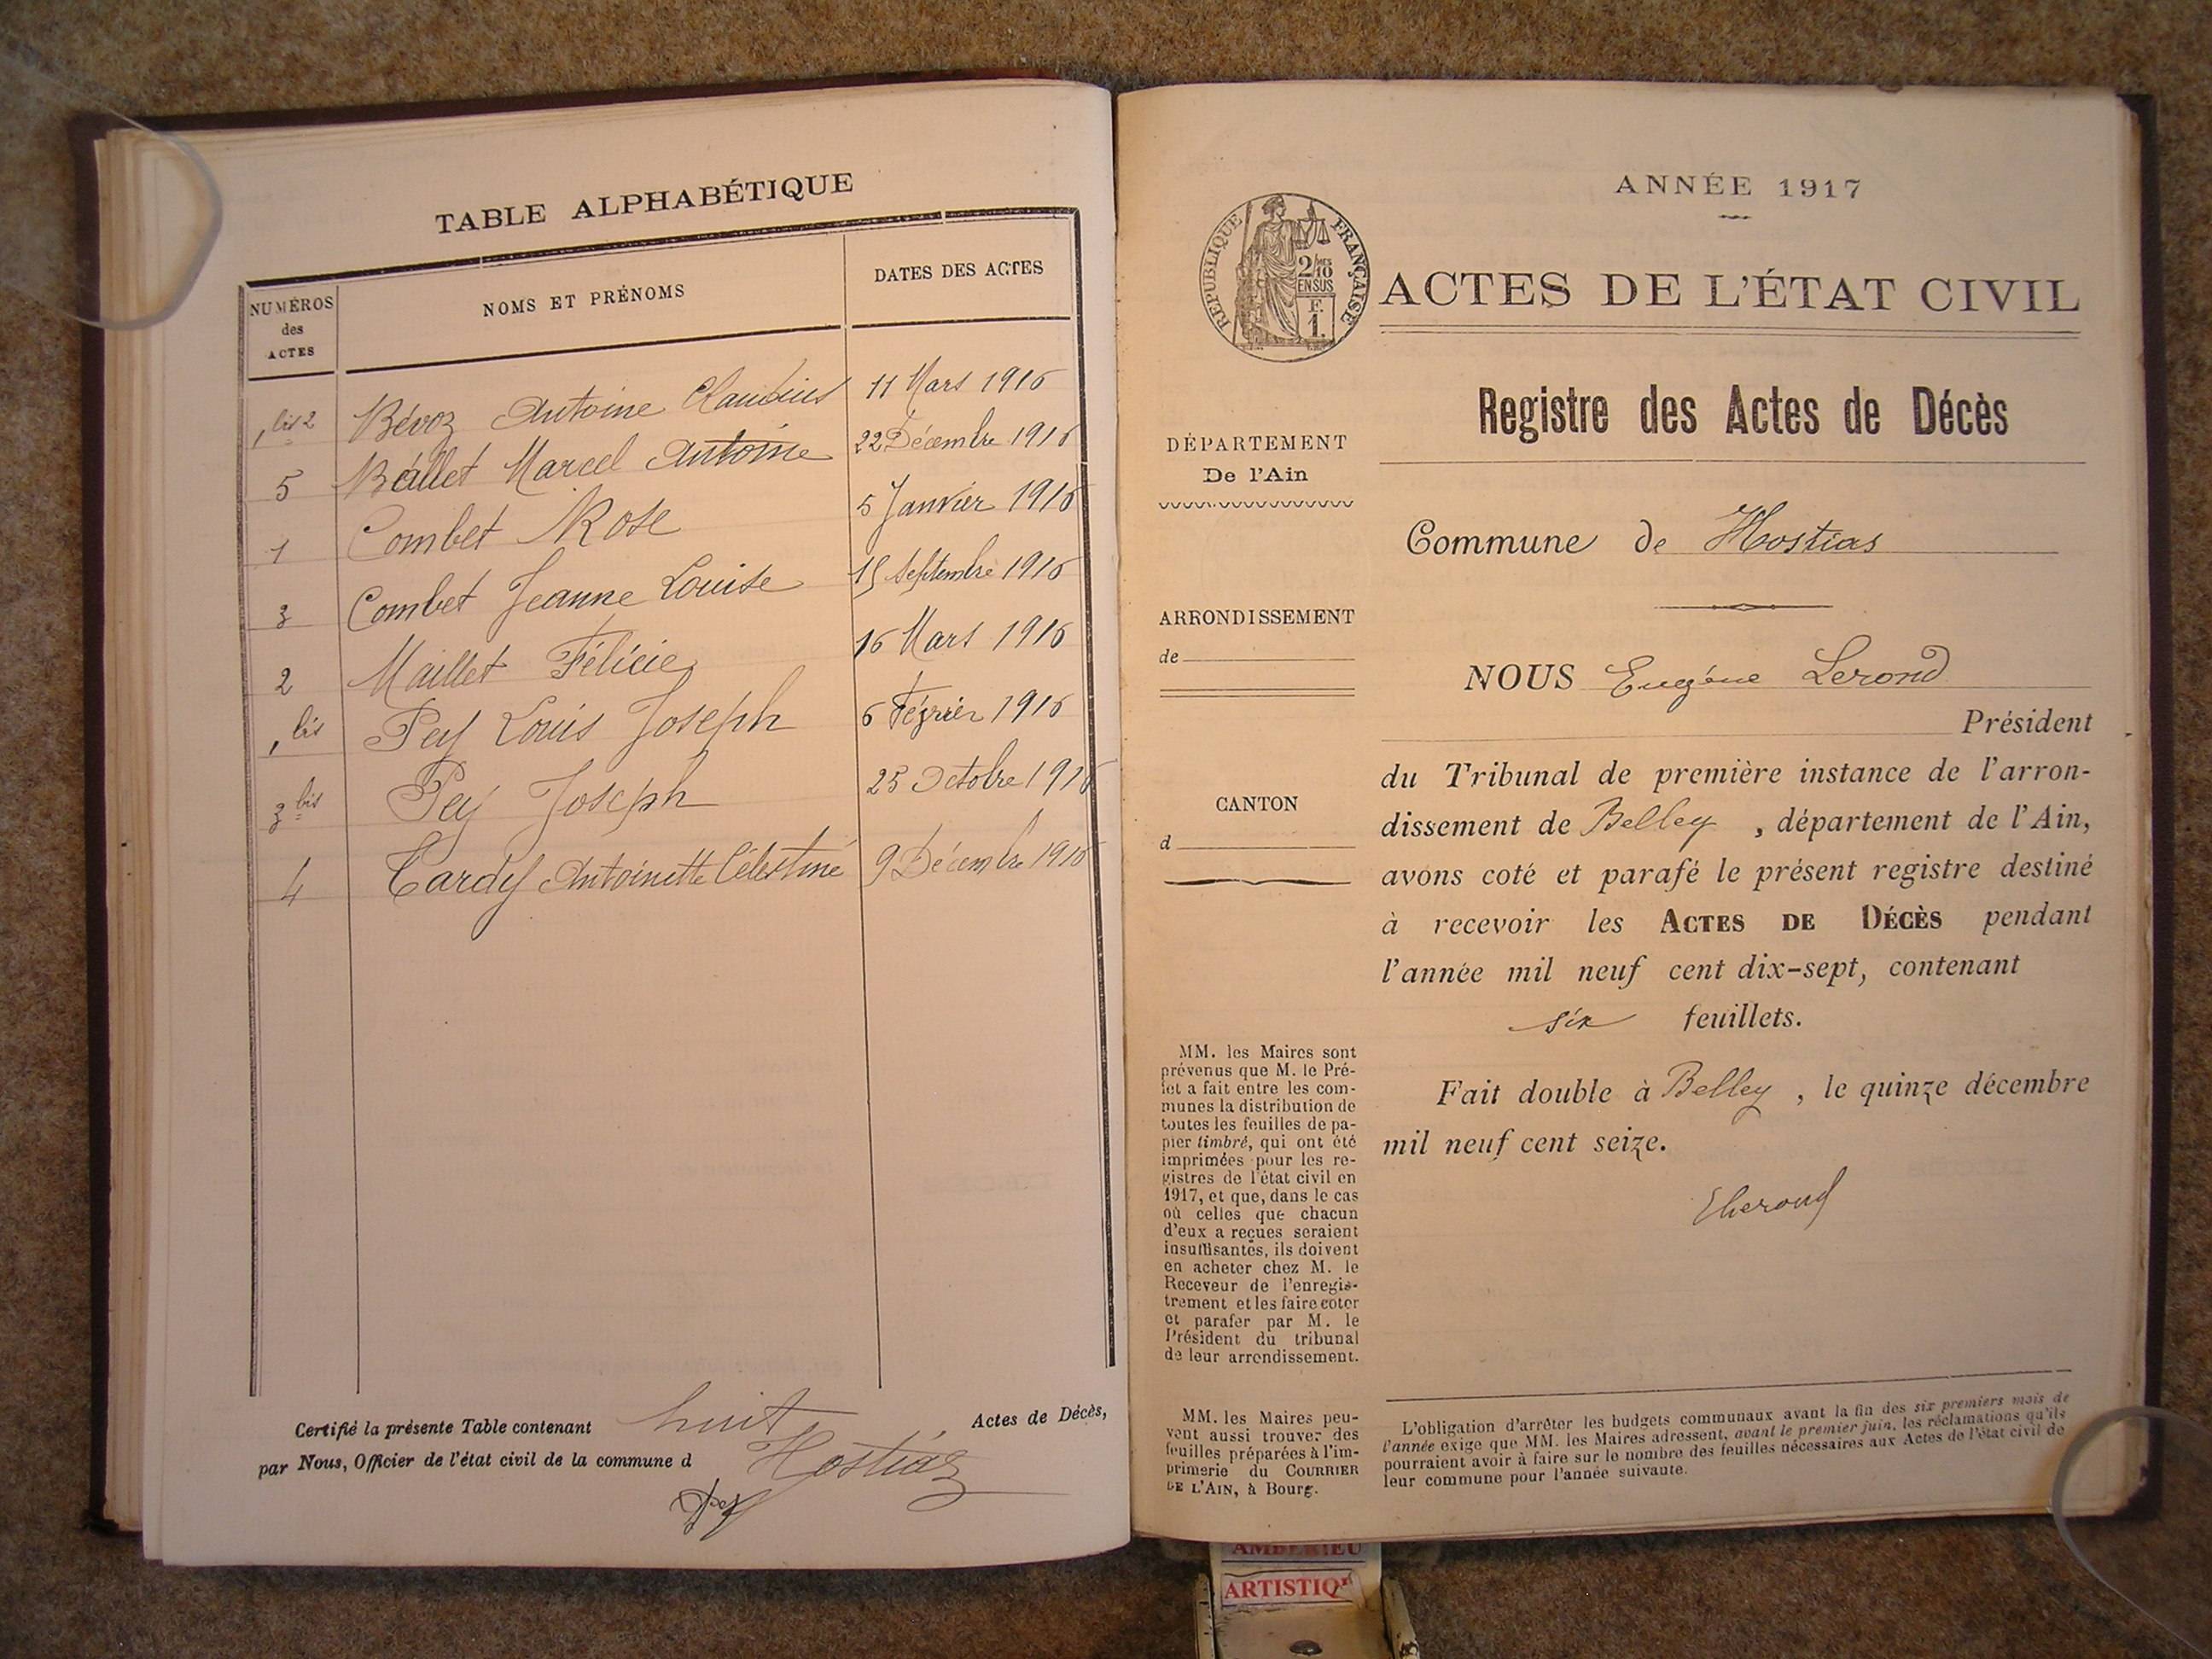 TABLE ALPHABÉTIQUE
NUMÉROS des ACTES
NOMS ET PRÉNOMS
DATES DES ACTES
1 bis 2 Bévoz Antoine Claudius 11 Mars 1916
5 Ballet Marcel Antoine 22 Décembre 1916
1 Combet Rose 5 Janvier 1916
3 Combet Jeanne Louise 15 Septembre 1916
2 Maillet Félicie 16 Mars 1916
1 bis Pey Louis Joseph 6 Février 1916
3 bis Pey Joseph 25 Octobre 1916
4 Tardy Antoinette Célestine 9 Décembre 1916
Certifié la présente Table contenant huit Actes de Décès,
par Nous, Officier de l'état civil de la commune d Hostiaz
Pey
ANNÉE 1917
RÉPUBLIQUE FRANÇAISE
2/10MES
EN SUS
F.
1.
ACTES DE L'ÉTAT CIVIL
Registre des Actes de Décès
DÉPARTEMENT
De l'Ain
Commune de Hostias
ARRONDISSEMENT
de
NOUS Eugène Lerond
Président
du Tribunal de première instance de l'arron-
dissement de Belley , département de l'Ain,
avons coté et parafé le présent registre destiné
à recevoir les ACTES DE DÉCÈS pendant
l'année mil neuf cent dix-sept, contenant
six feuillets.
Fait double à Belley , le quinze décembre
mil neuf cent seize.
CANTON
d
MM. les Maires sont
prévenus que M. le Pré-
fet a fait entre les com-
munes la distribution de
toutes les feuilles de pa-
pier timbré, qui ont été
imprimées pour les re-
gistres de l'état civil en
1917, et que, dans le cas
où celles que chacun
d'eux a reçues seraient
insuffisantes, ils doivent
en acheter chez M. le
Receveur de l'enregis-
trement et les faire coter
et parafer par M. le
Président du tribunal
de leur arrondissement.
MM. les Maires peu-
vent aussi trouver des
feuilles préparées à l'im-
primerie du COURRIER
DE L'AIN, à Bourg.
L'obligation d'arrêter les budgets communaux avant la fin des six premiers mois de
l'année exige que MM. les Maires adressent, avant le premier juin, les réclamations qu'ils
pourraient avoir à faire sur le nombre des feuilles nécessaires aux Actes de l'état civil de
leur commune pour l'année suivante.
AMBERIEU
ARTISTIQ